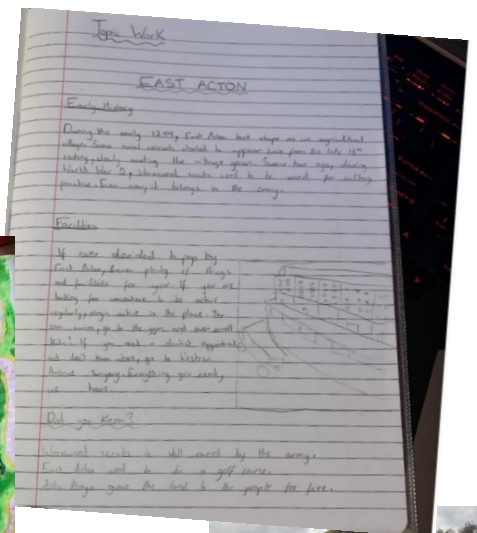 Topic Work
EAST ACTON
Early History
During the early 1294, East Acton took shape as an agricultural
village. Some rural retreats started to appear here from the late 18th
century, slowly making the village grow. Some time ago, during
World War 2, Wormwood scrubs used to be used for military
practise. Even now, it belongs to the army.
Facilities
If ever decided to pop by
East Acton, there plenty of things
and facilities for you. If you are
looking for somewhere to be active
regularly, active is the place. You
can swim, go to the gym and even
If you need a dentist appointment
but don't know where, go to Western
Avenue Surgery. Everything you need,
we have.
Did you Know?
Wormwood scrubs is still owned by the army.
East Acton used to be a golf course.
gave the land to the people for free.